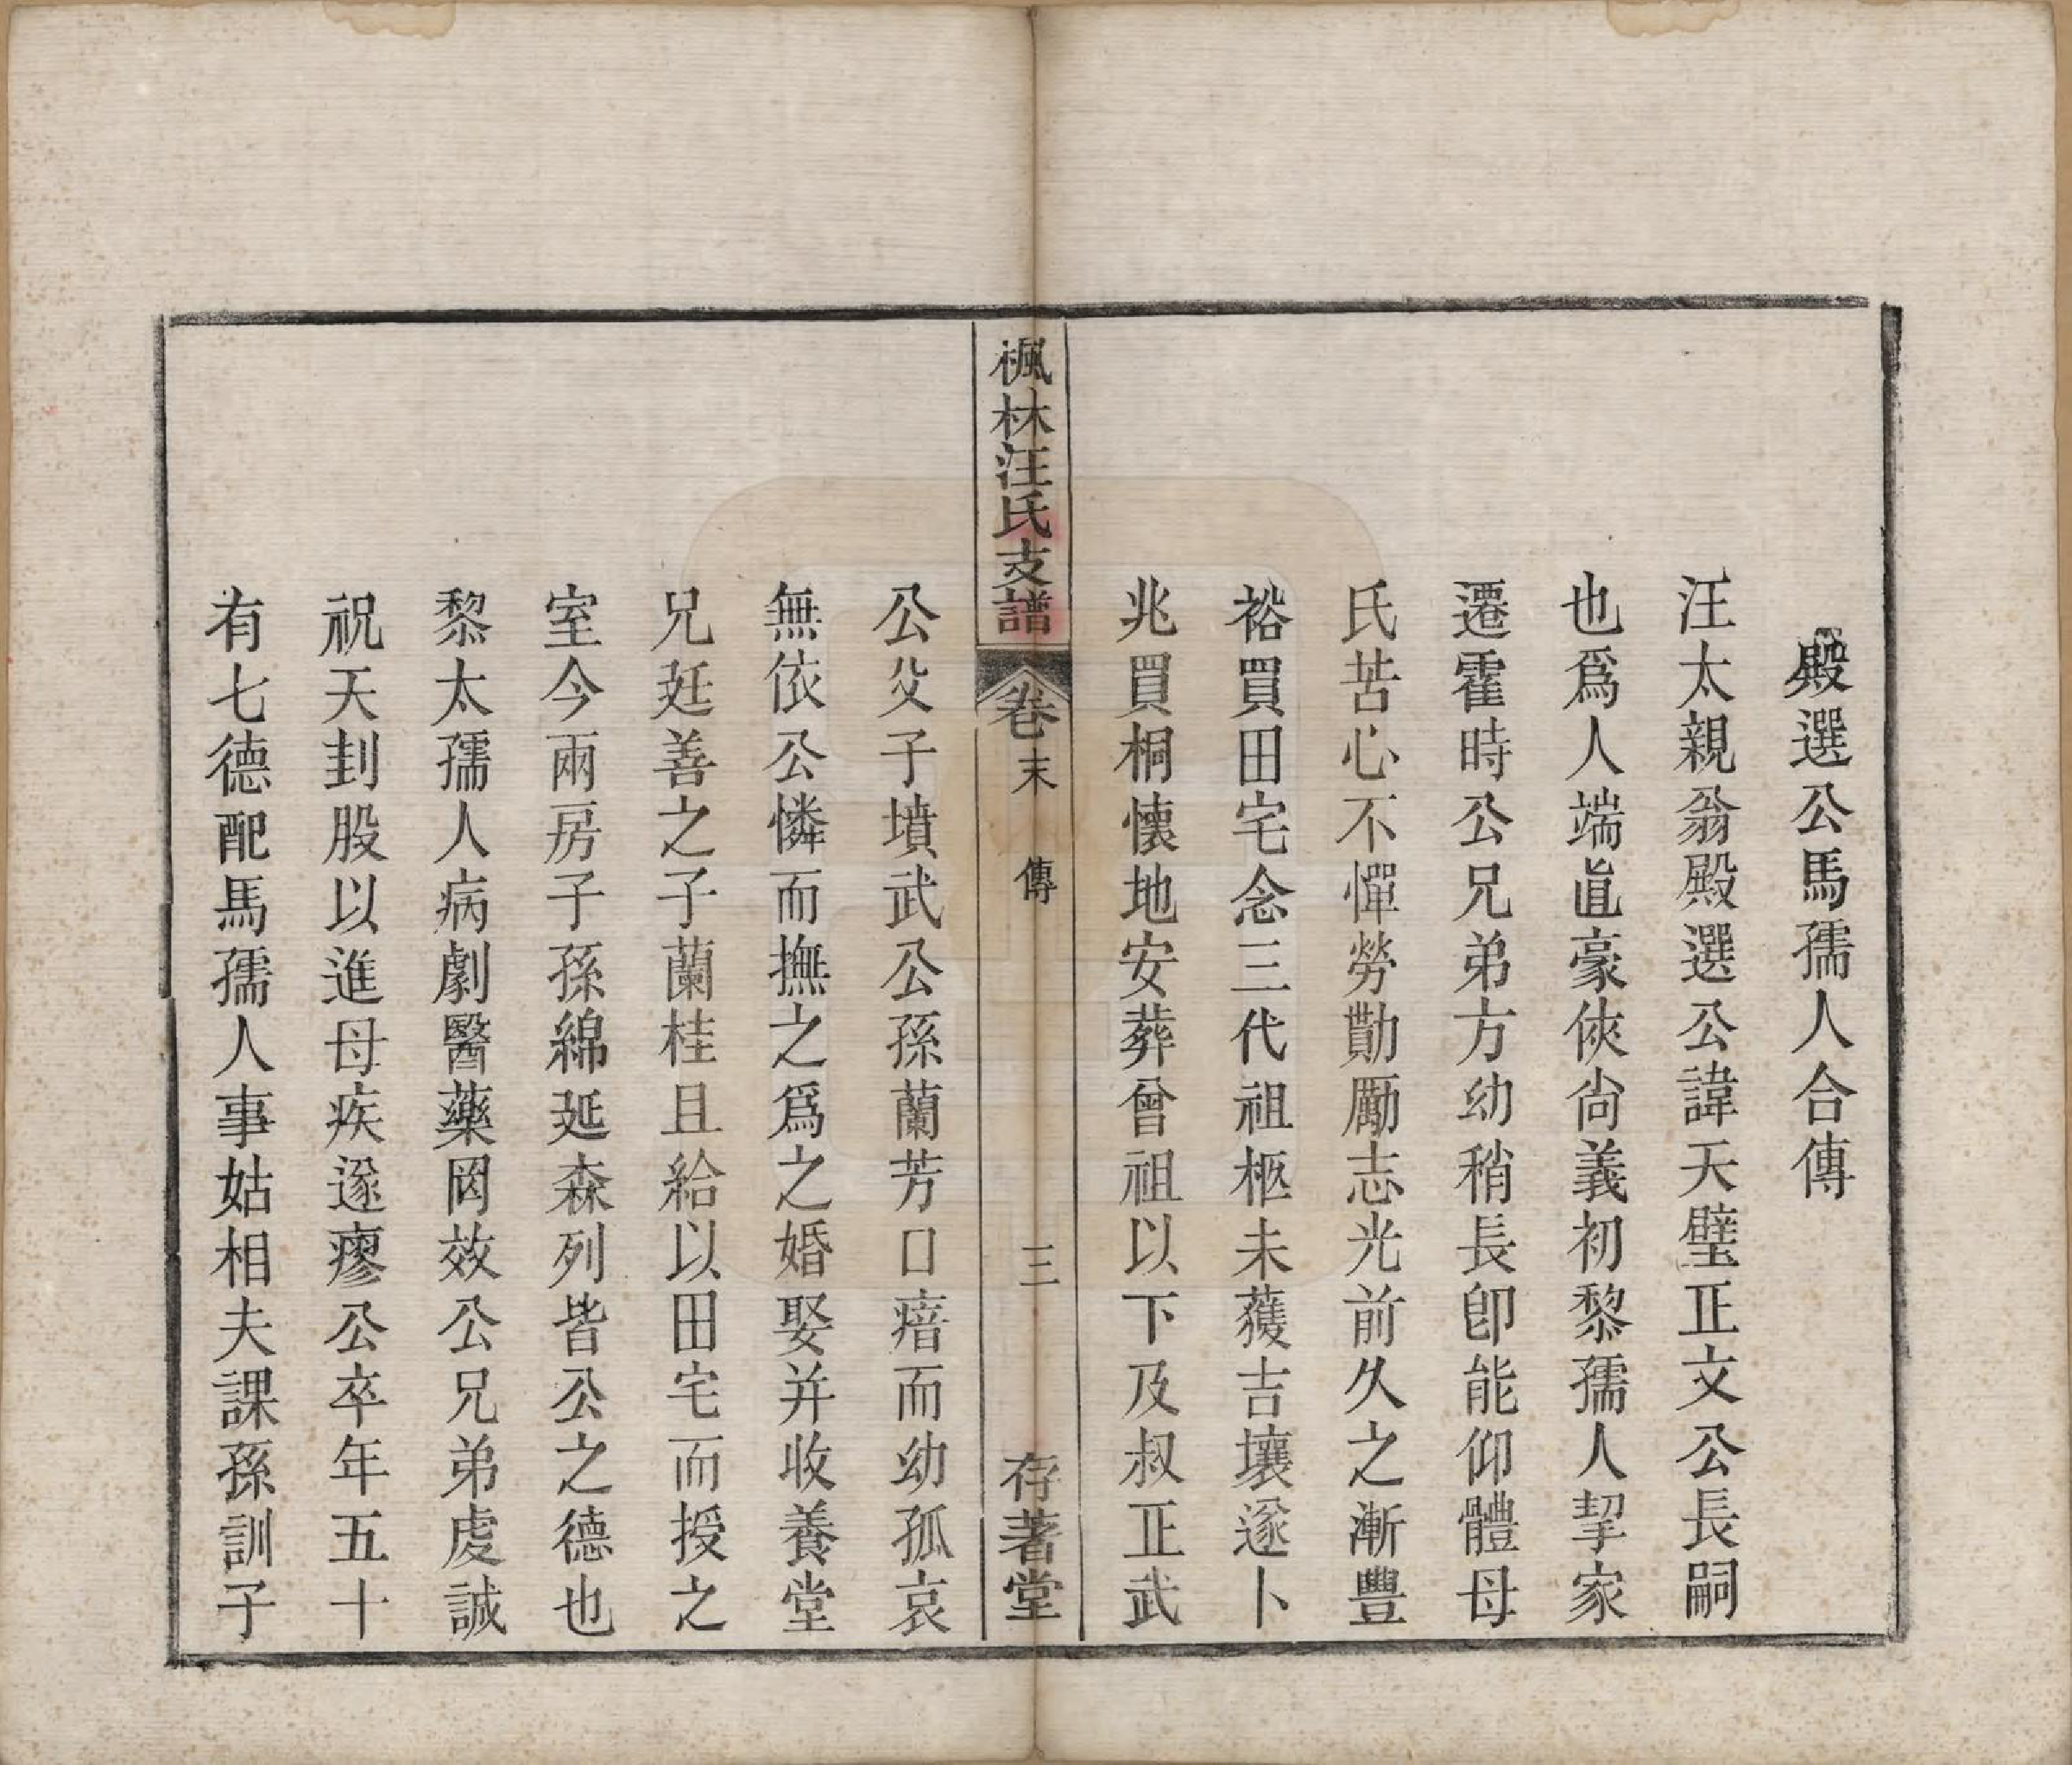 殿選公馬孺人合傳
汪太親翁殿選公諱天璧正文公長嗣
也爲人端直豪俠尙義初黎孺人挈家
遷霍時公兄弟方幼稍長卽能仰體母
氏苦心不憚勞勤勵志光前久之漸豐
裕買田宅念三代祖柩未獲吉壤遂卜
兆買桐懷地安葬曾祖以下及叔正武
楓林汪氏支譜
卷末
傳
三
存著堂
公父子墳武公孫蘭芳口瘖而幼孤哀
無依公憐而撫之爲之婚娶并收養堂
兄廷善之子蘭桂且給以田宅而授之
室今兩房子孫綿延森列皆公之德也
黎太孺人病劇醫藥罔效公兄弟虔誠
祝天刲股以進母疾遂瘳公卒年五十
有七德配馬孺人事姑相夫課孫訓子